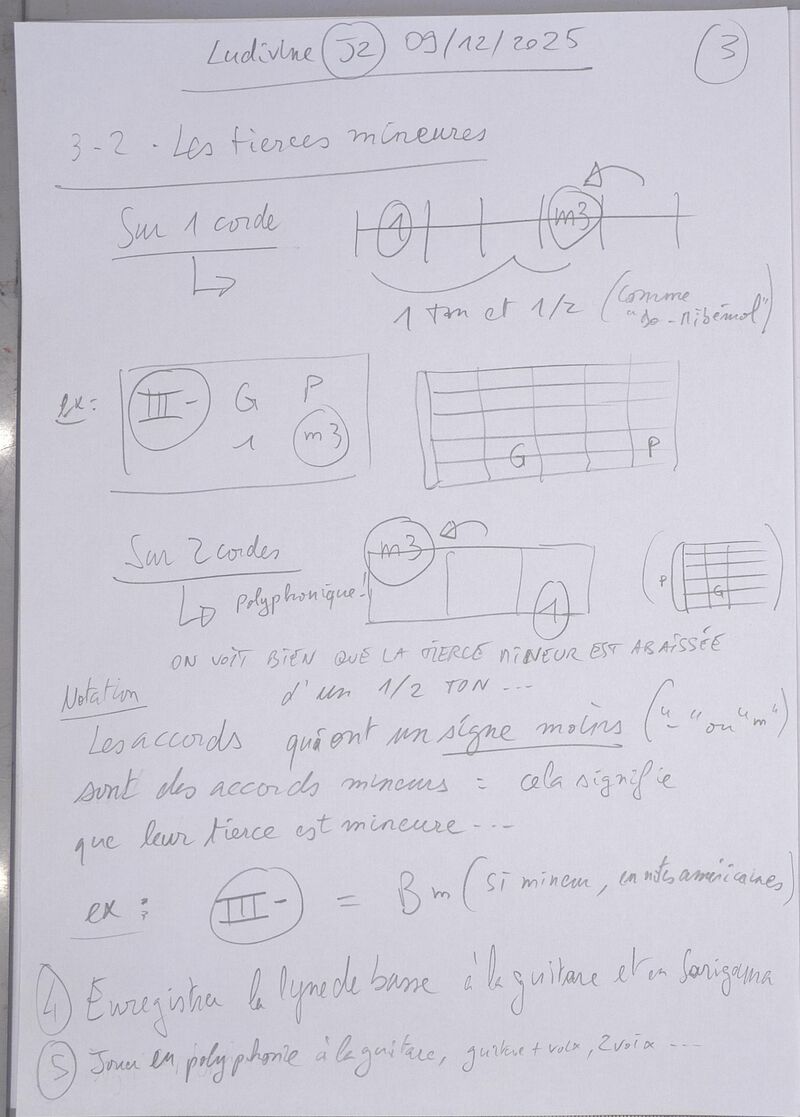 Ludivine J2 09/12/2025 3
3-2. Les tierces mineures
Sur 1 corde
1 m3
1 ton et 1/2 (comme
"Do-Mibémol")
ex: III- G P
1 m3
G P
Sur 2 cordes m3
Polyphonique! 1 P G
ON VOIT BIEN QUE LA TIERCE MINEUR EST ABAISSÉE
d'un 1/2 TON...
Notation
Les accords qui ont un signe moins ("-" ou "m")
sont des accords mineurs = cela signifie
que leur tierce est mineure...
ex: III- = Bm (Si mineur, en notes américaines)
4 Enregistrer la lyne de basse à la guitare et en Sarigama
5 Jouer en polyphonie à la guitare, guitare + voix, 2 voix...